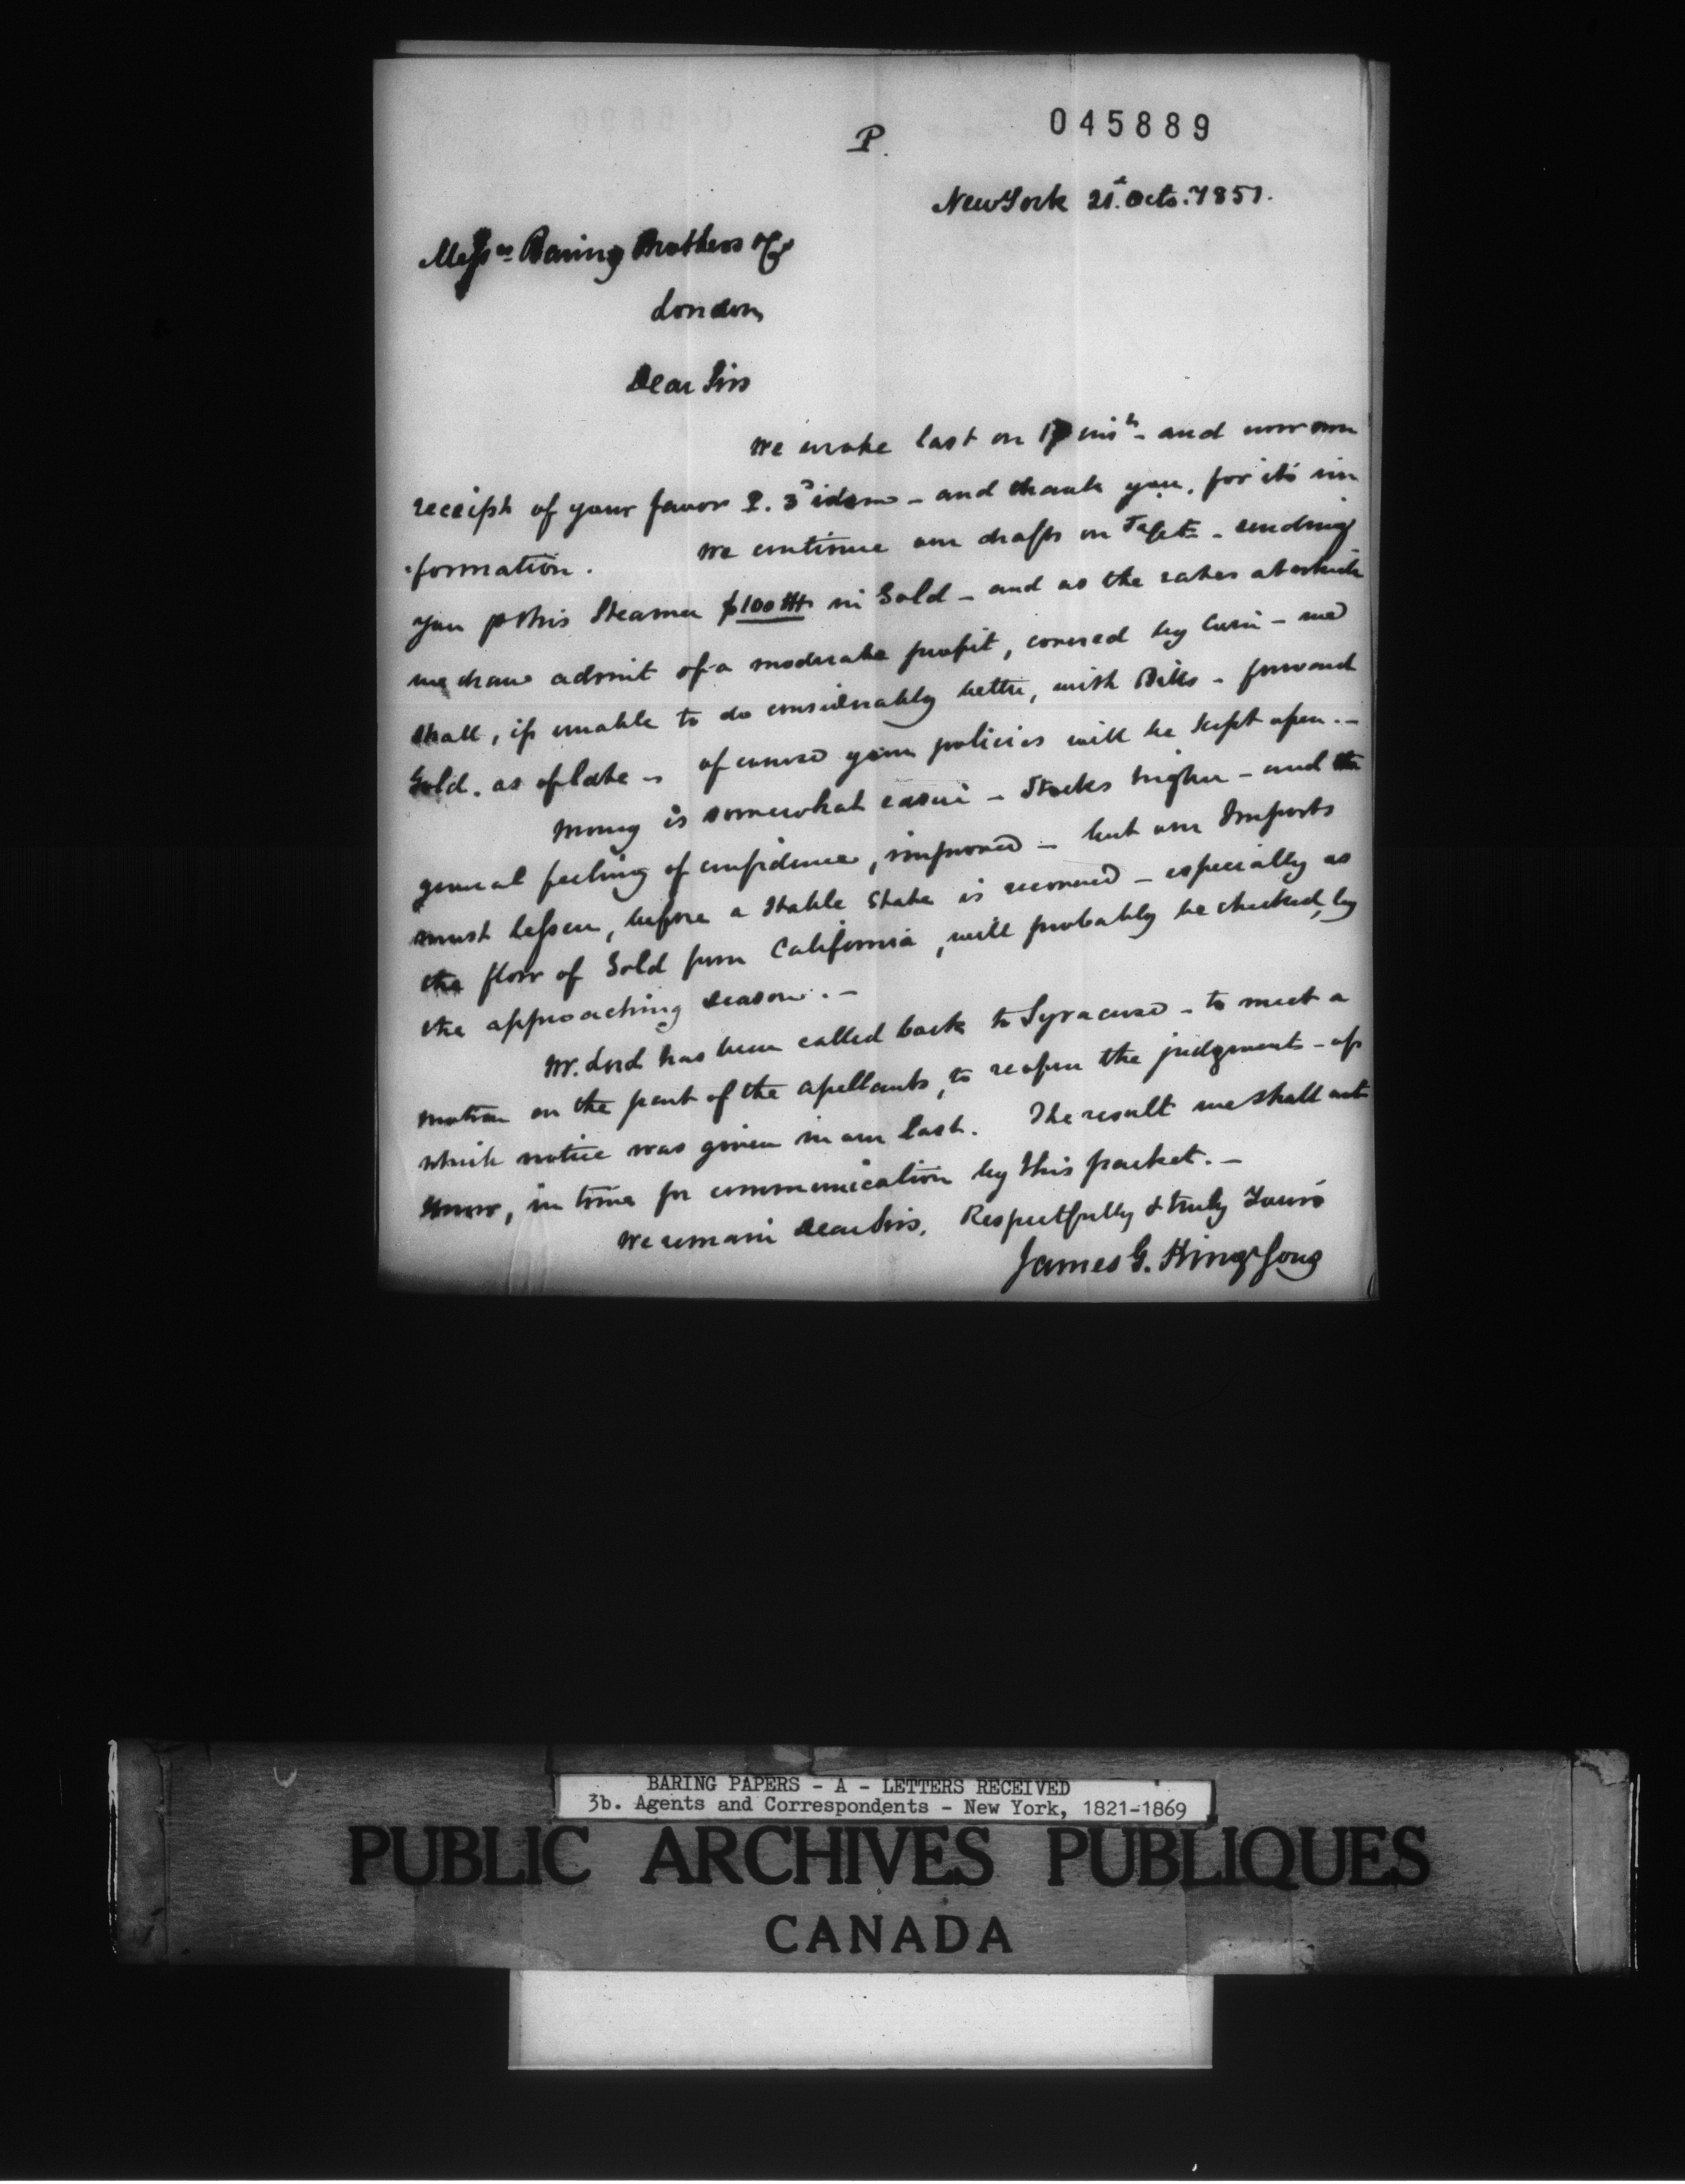 045889
P.
New York 21st Octo. 1851.
Messrs Baring Brothers & Co
London
Dear Sirs
We wrote last on inst - and now own
receipt of your favor P. 3d idem - and thank you, for its in
formation. We continue our drafts on - sending
you p this Steamer $100 in Gold - and as the rates at which
we draw admit of a moderate profit, covered by Coin - we
shall, if unable to do considerably better, with Bills - forward
Gold. as of late - of course your policies will be kept open. -
Money is somewhat easier - Stocks higher - and the
general feeling of confidence, improved - but our Imports
must lessen, before a stable state is recovered - especially as
the flow of Gold from California, will probably be checked, by
the approaching season. -
Mr. Lord has been called back to Syracuse - to meet a
motion on the part of the apellants, to reopen the judgment - of
which notice was given in our last. The result we shall not
know, in time for communication by this packet. -
We remain Dear Sirs, Respectfully & truly Yours
James G. King & Sons
BARING PAPERS - A - LETTERS RECEIVED
3b. Agents and Correspondents - New York, 1821-1869
PUBLIC ARCHIVES PUBLIQUES
CANADA